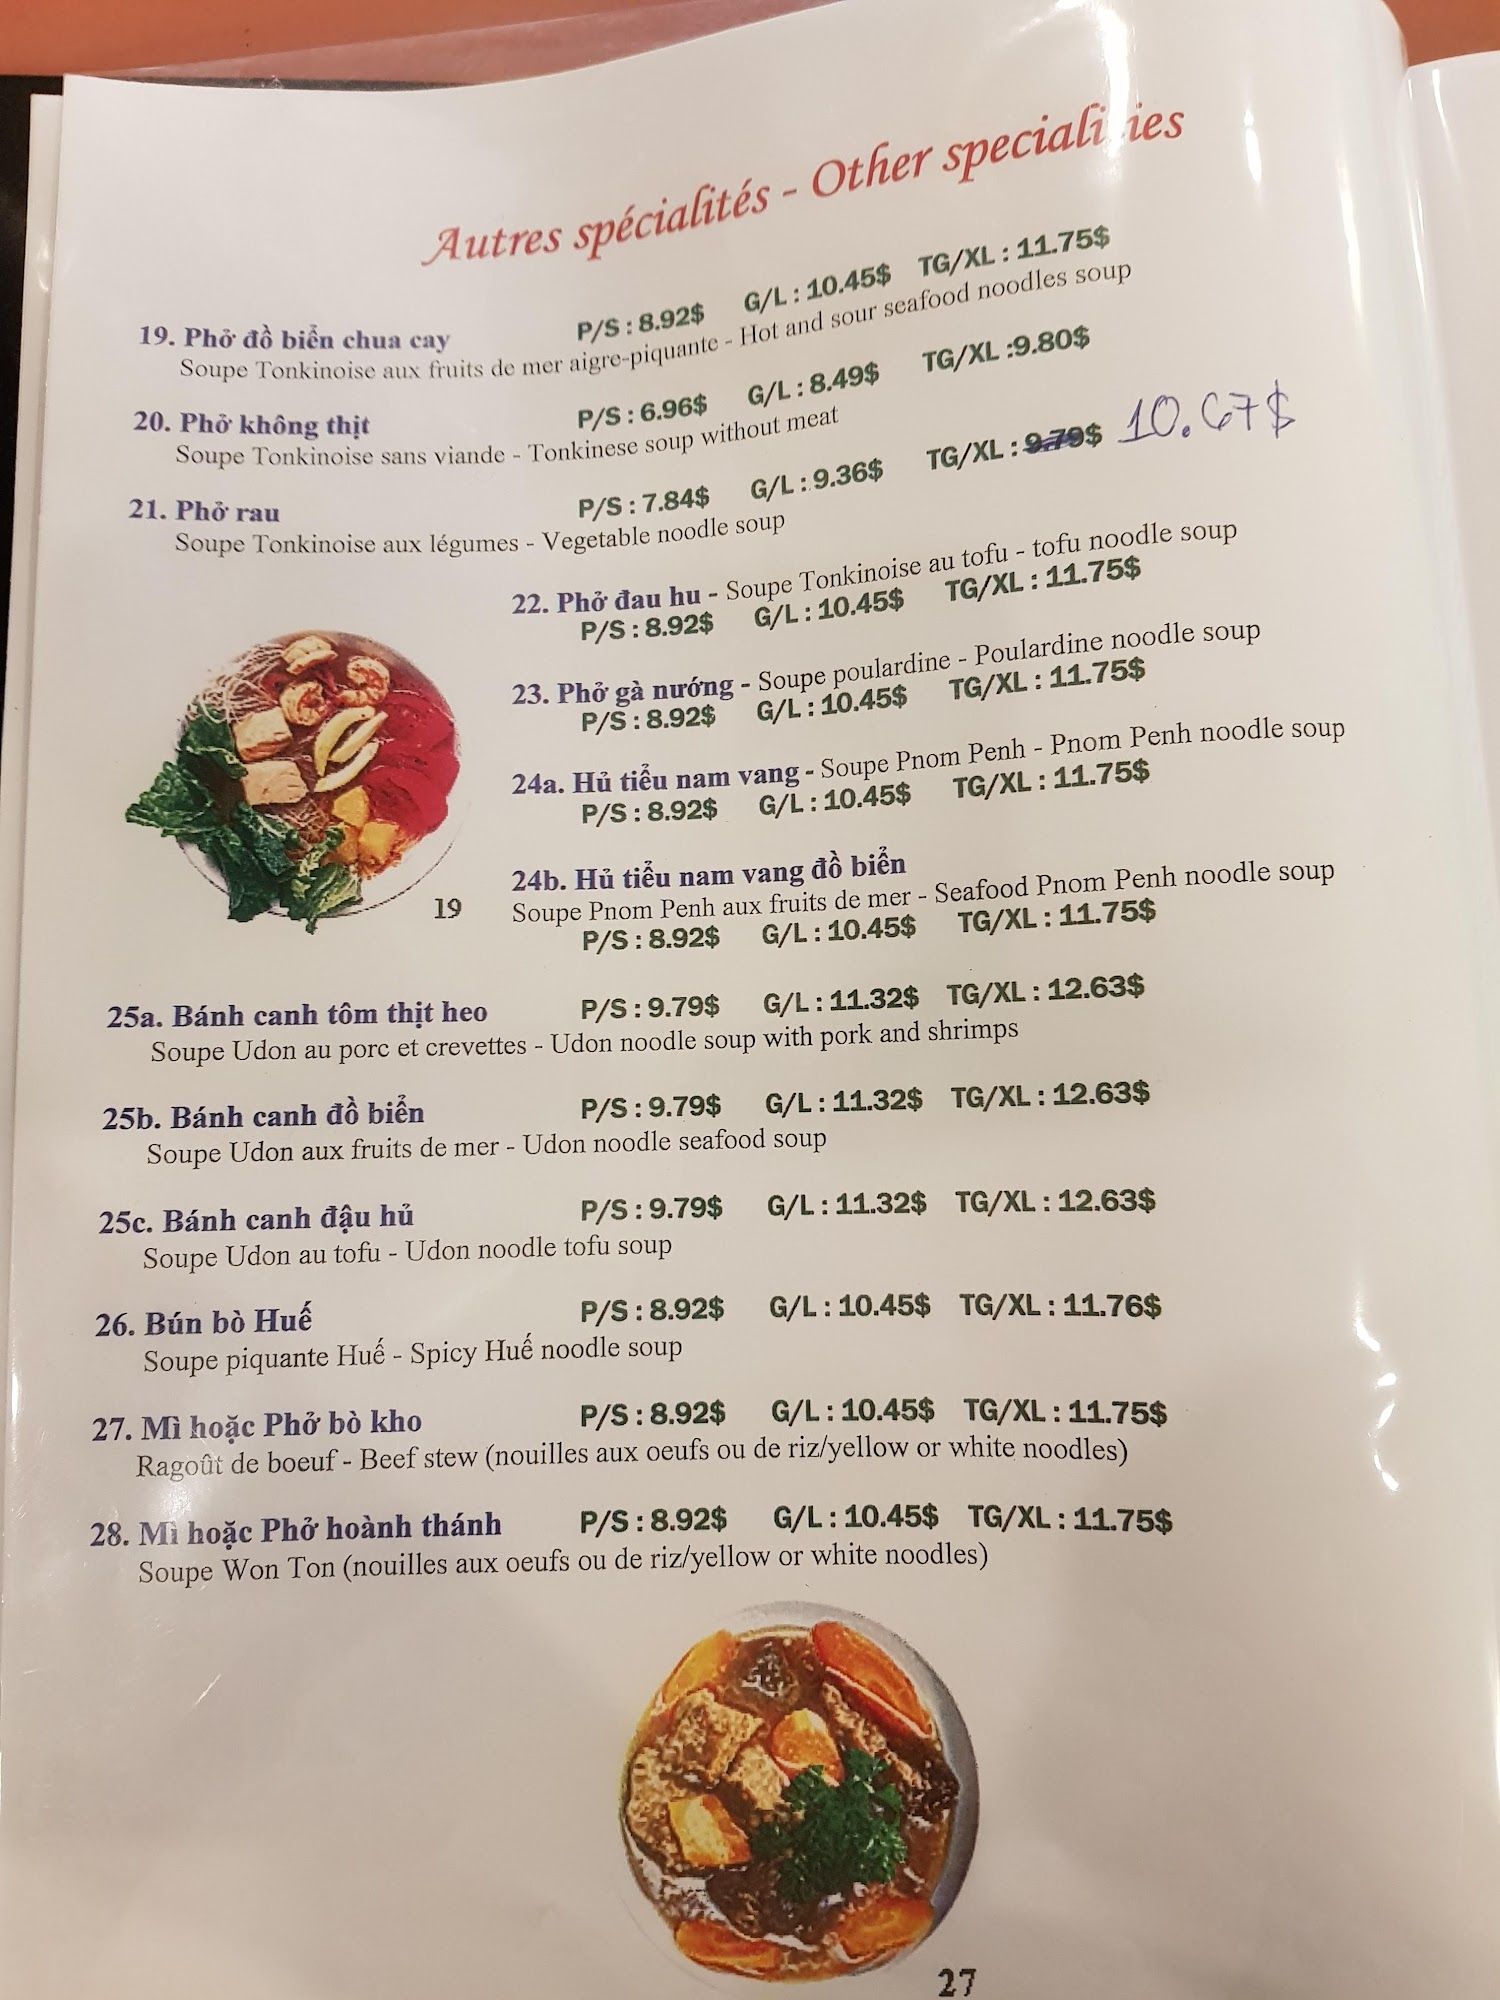 Autres spécialités - Other specialities
19. Phở đồ biển chua cay P/S : 8.92$ G/L : 10.45$ TG/XL : 11.75$
Soupe Tonkinoise aux fruits de mer aigre-piquante - Hot and sour seafood noodles soup
20. Phở không thịt P/S : 6.96$ G/L : 8.49$ TG/XL :9.80$
Soupe Tonkinoise sans viande - Tonkinese soup without meat
21. Phở rau P/S : 7.84$ G/L : 9.36$ TG/XL : 9.79$ 10.67$
Soupe Tonkinoise aux légumes - Vegetable noodle soup
22. Phở đau hu - Soupe Tonkinoise au tofu - tofu noodle soup
P/S : 8.92$ G/L : 10.45$ TG/XL : 11.75$
23. Phở gà nướng - Soupe poulardine - Poulardine noodle soup
P/S : 8.92$ G/L : 10.45$ TG/XL : 11.75$
24a. Hủ tiểu nam vang - Soupe Pnom Penh - Pnom Penh noodle soup
P/S : 8.92$ G/L : 10.45$ TG/XL : 11.75$
24b. Hủ tiểu nam vang đồ biển
Soupe Pnom Penh aux fruits de mer - Seafood Pnom Penh noodle soup
P/S : 8.92$ G/L : 10.45$ TG/XL : 11.75$
19
25a. Bánh canh tôm thịt heo P/S : 9.79$ G/L : 11.32$ TG/XL : 12.63$
Soupe Udon au porc et crevettes - Udon noodle soup with pork and shrimps
25b. Bánh canh đồ biển P/S : 9.79$ G/L : 11.32$ TG/XL : 12.63$
Soupe Udon aux fruits de mer - Udon noodle seafood soup
25c. Bánh canh đậu hủ P/S : 9.79$ G/L : 11.32$ TG/XL : 12.63$
Soupe Udon au tofu - Udon noodle tofu soup
26. Bún bò Huế P/S : 8.92$ G/L : 10.45$ TG/XL : 11.76$
Soupe piquante Huế - Spicy Huế noodle soup
27. Mì hoặc Phở bò kho P/S : 8.92$ G/L : 10.45$ TG/XL : 11.75$
Ragoût de boeuf - Beef stew (nouilles aux oeufs ou de riz/yellow or white noodles)
28. Mì hoặc Phở hoành thánh P/S : 8.92$ G/L : 10.45$ TG/XL : 11.75$
Soupe Won Ton (nouilles aux oeufs ou de riz/yellow or white noodles)
27